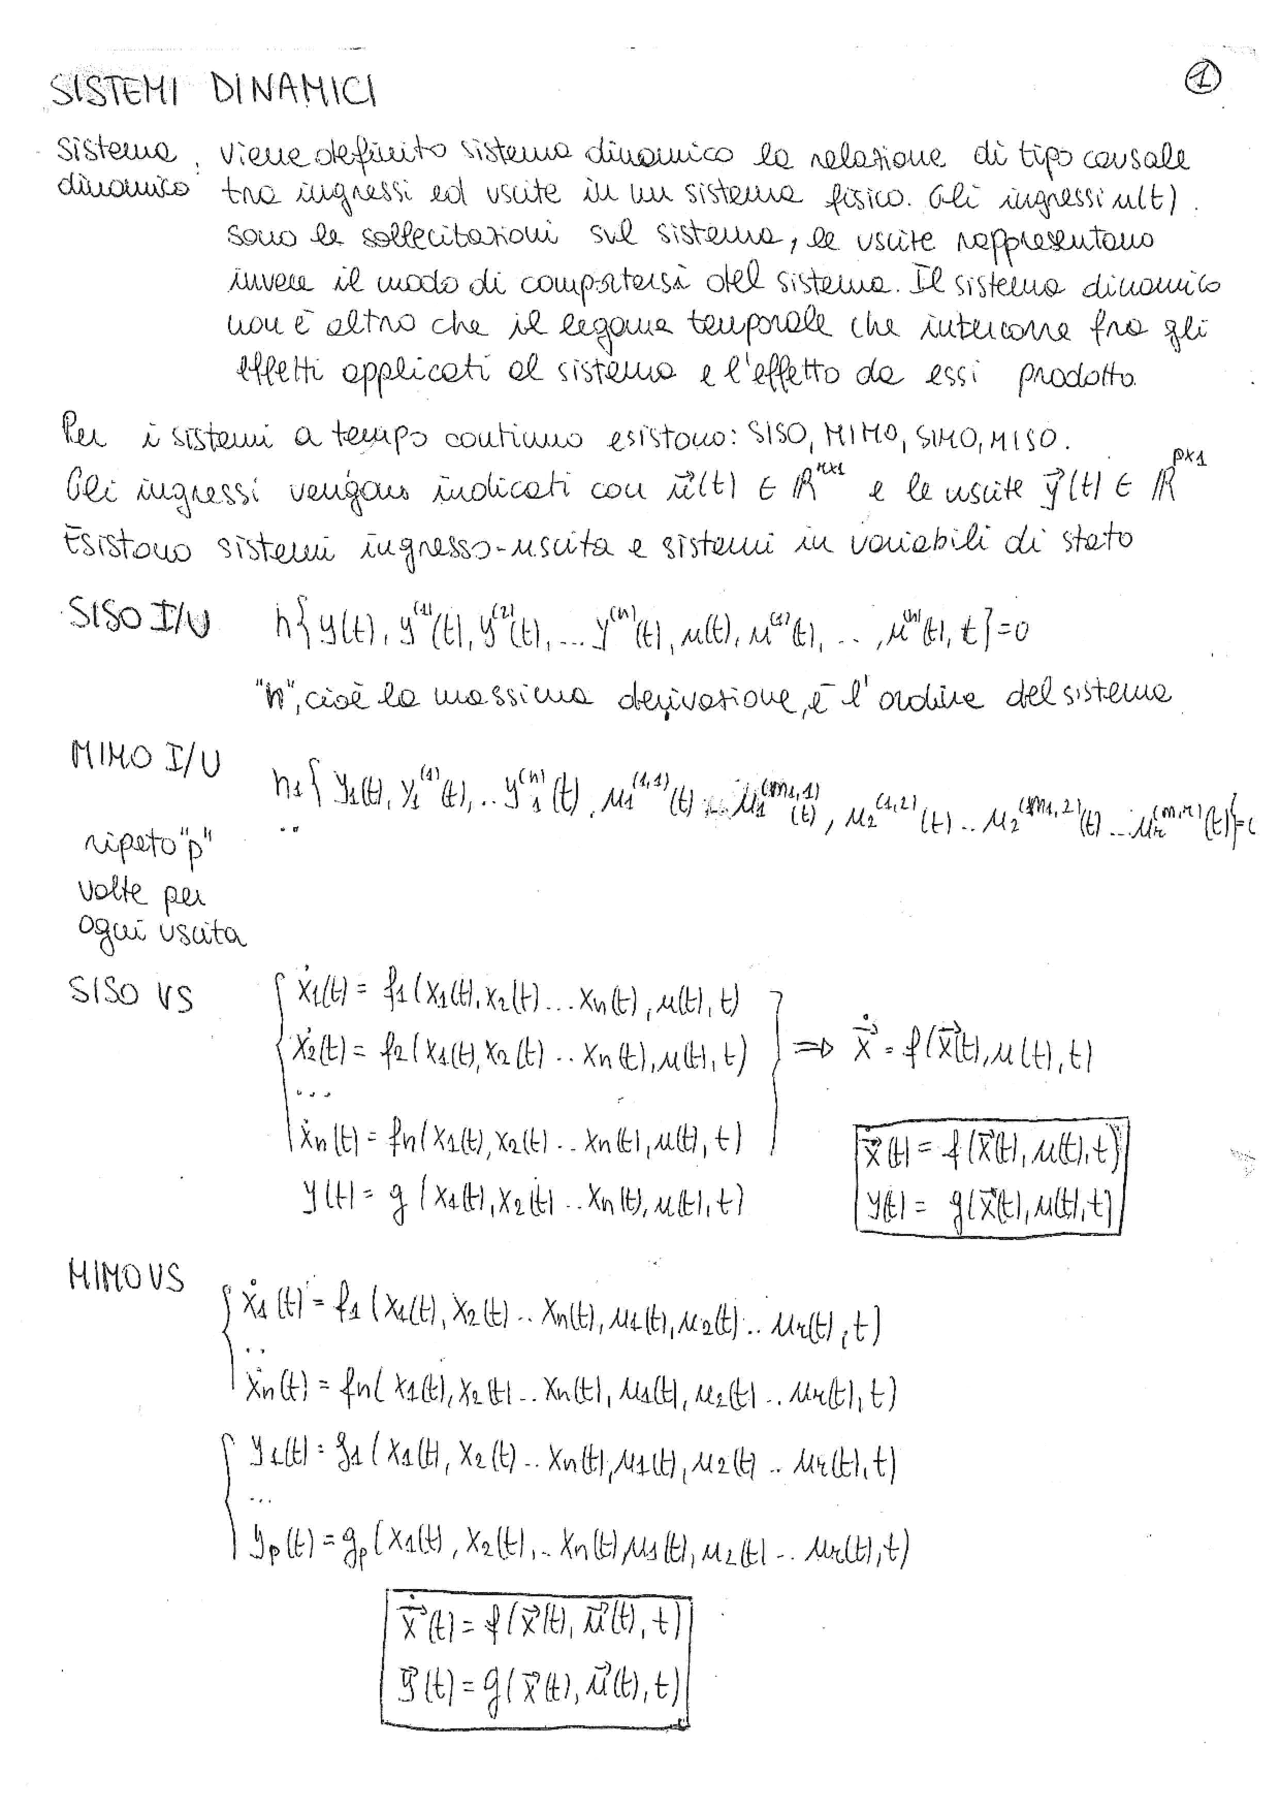 SISTEMI DINAMICI
1
Sistema dinamico: viene definito sistema dinamico la relazione di tipo causale
tra ingressi ed uscite in un sistema fisico. Gli ingressi u(t)
sono le sollecitazioni sul sistema, le uscite rappresentano
invece il modo di comportarsi del sistema. Il sistema dinamico
non è altro che il legame temporale che intercorre fra gli
effetti applicati al sistema e l'effetto da essi prodotto.
Per i sistemi a tempo continuo esistono: SISO, MIMO, SIMO, MISO.
Gli ingressi vengono indicati con u⃗(t) ∈ ℝ^{rx1} e le uscite y⃗(t) ∈ ℝ^{px1}
Esistono sistemi ingresso-uscita e sistemi in variabili di stato
SISO I/U h{y(t), y^{(1)}(t), y^{(2)}(t), ... y^{(n)}(t), u(t), u^{(1)}(t), .., u^{(n)}(t), t}=0
"n", cioè la massima derivazione, è l'ordine del sistema
MIMO I/U h₁{y₁(t), y₁^{(1)}(t), .. y₁^{(n)}(t), u₁^{(1,1)}(t) .. u₁^{(m1,1)}(t), u₂^{(1,2)}(t) .. u₂^{(m1,2)}(t) ... u_r^{(m,r)}(t)}=
..
ripeto "p"
volte per
ogni uscita
SISO VS
ẋ₁(t) = f₁(x₁(t), x₂(t) ... xn(t), u(t), t)
ẋ₂(t) = f₂(x₁(t), x₂(t) .. xn(t), u(t), t) ⇒ ẋ⃗ = f(x⃗(t), u(t), t)
...
ẋn(t) = fn(x₁(t), x₂(t) .. xn(t), u(t), t)
y(t) = g(x₁(t), x₂(t) .. xn(t), u(t), t)
ẋ⃗(t) = f(x⃗(t), u(t), t)
y(t) = g(x⃗(t), u(t), t)
MIMO VS
ẋ₁(t) = f₁(x₁(t), x₂(t) .. xn(t), u₁(t), u₂(t) .. ur(t), t)
..
ẋn(t) = fn(x₁(t), x₂(t) .. xn(t), u₁(t), u₂(t) .. ur(t), t)
y₁(t) = g₁(x₁(t), x₂(t) .. xn(t), u₁(t), u₂(t) .. ur(t), t)
...
yp(t) = gp(x₁(t), x₂(t), .. xn(t), u₁(t), u₂(t) .. ur(t), t)
ẋ⃗(t) = f(x⃗(t), u⃗(t), t)
y⃗(t) = g(x⃗(t), u⃗(t), t)